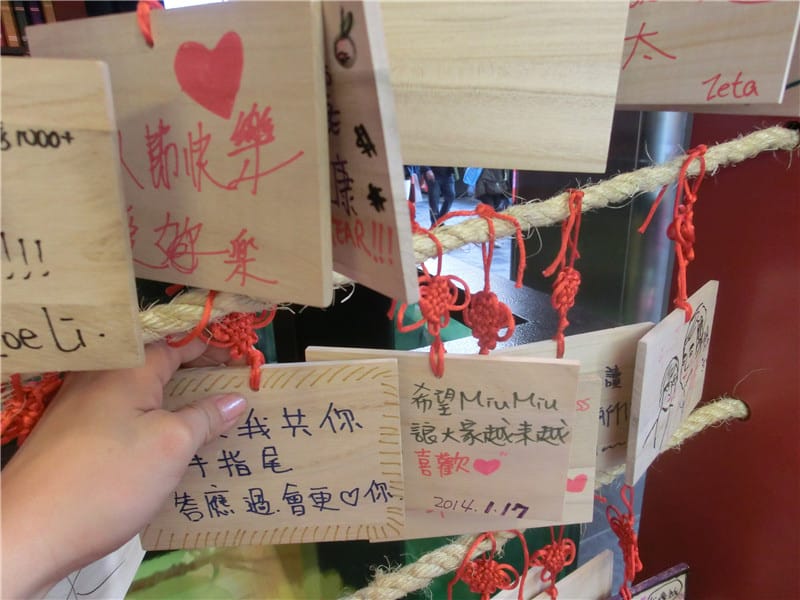 1000+
!!!
oe Li.
人節快樂
樂
康
EAR!!!
太
Zeta
我共你
手指尾
答應過會更♡你
希望MiuMiu
讓大家越來越
喜歡♥
2014.1.17